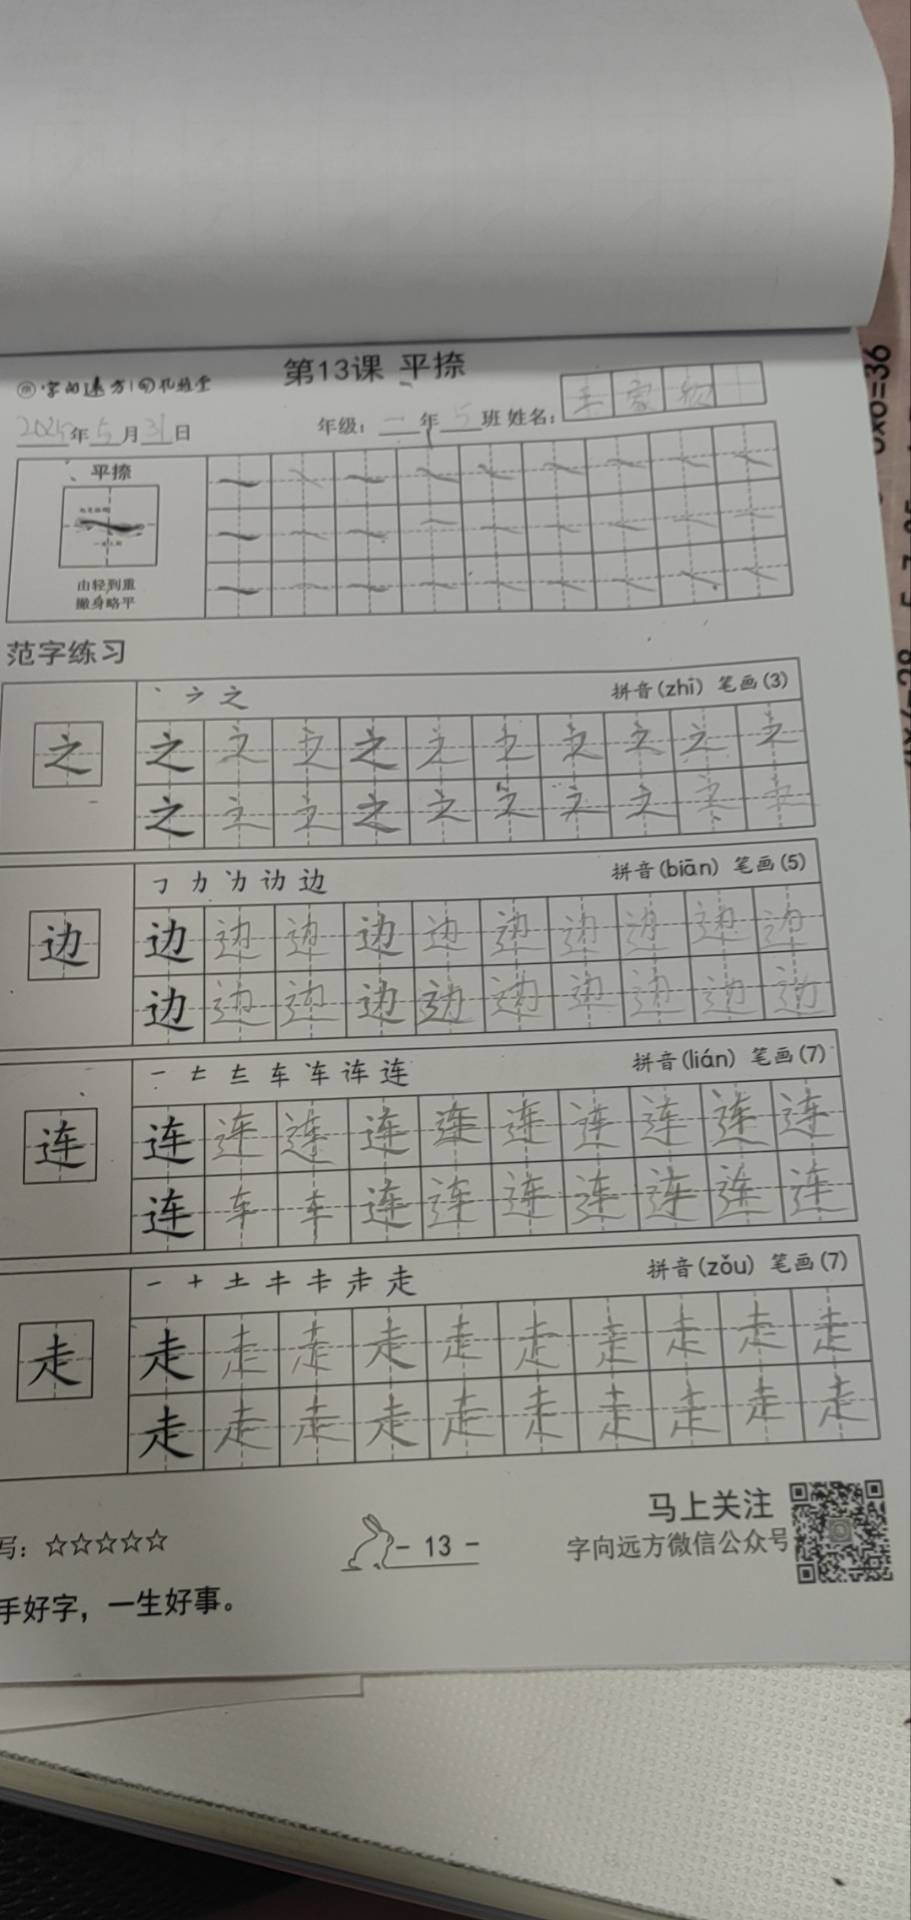 第13课 平捺
字向远方
2025年5月31日 年级：二年5班 姓名：
平捺
由轻到重
撇身略平
范字练习
丶 ㇇ 之 拼音(zhī) 笔画(3)
之 之 之 之 之 之 之 之 之 之 之
之 之 之 之 之 之 之 之 之 之
㇆ 力 边 拼音(biān) 笔画(5)
边 边 边 边 边 边 边 边 边 边 边
边 边 边 边 边 边 边 边 边 边
一 车 连 连 拼音(lián) 笔画(7)
连 连 连 连 连 连 连 连 连 连 连
连 车 车 连 连 连 连 连 连 连
一 十 土 走 走 拼音(zǒu) 笔画(7)
走 走 走 走 走 走 走 走 走 走 走
走 走 走 走 走 走 走 走 走 走
马上关注
写：☆☆☆☆☆ - 13 - 字向远方微信公众号
手好字，一生好事。